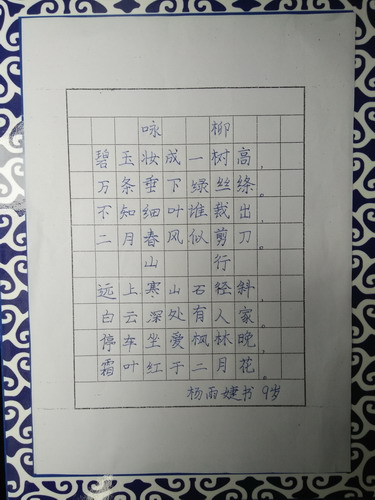 咏柳
碧玉妆成一树高，
万条垂下绿丝绦。
不知细叶谁裁出，
二月春风似剪刀。
山行
远上寒山石径斜，
白云深处有人家。
停车坐爱枫林晚，
霜叶红于二月花。
杨雨婕书 9岁